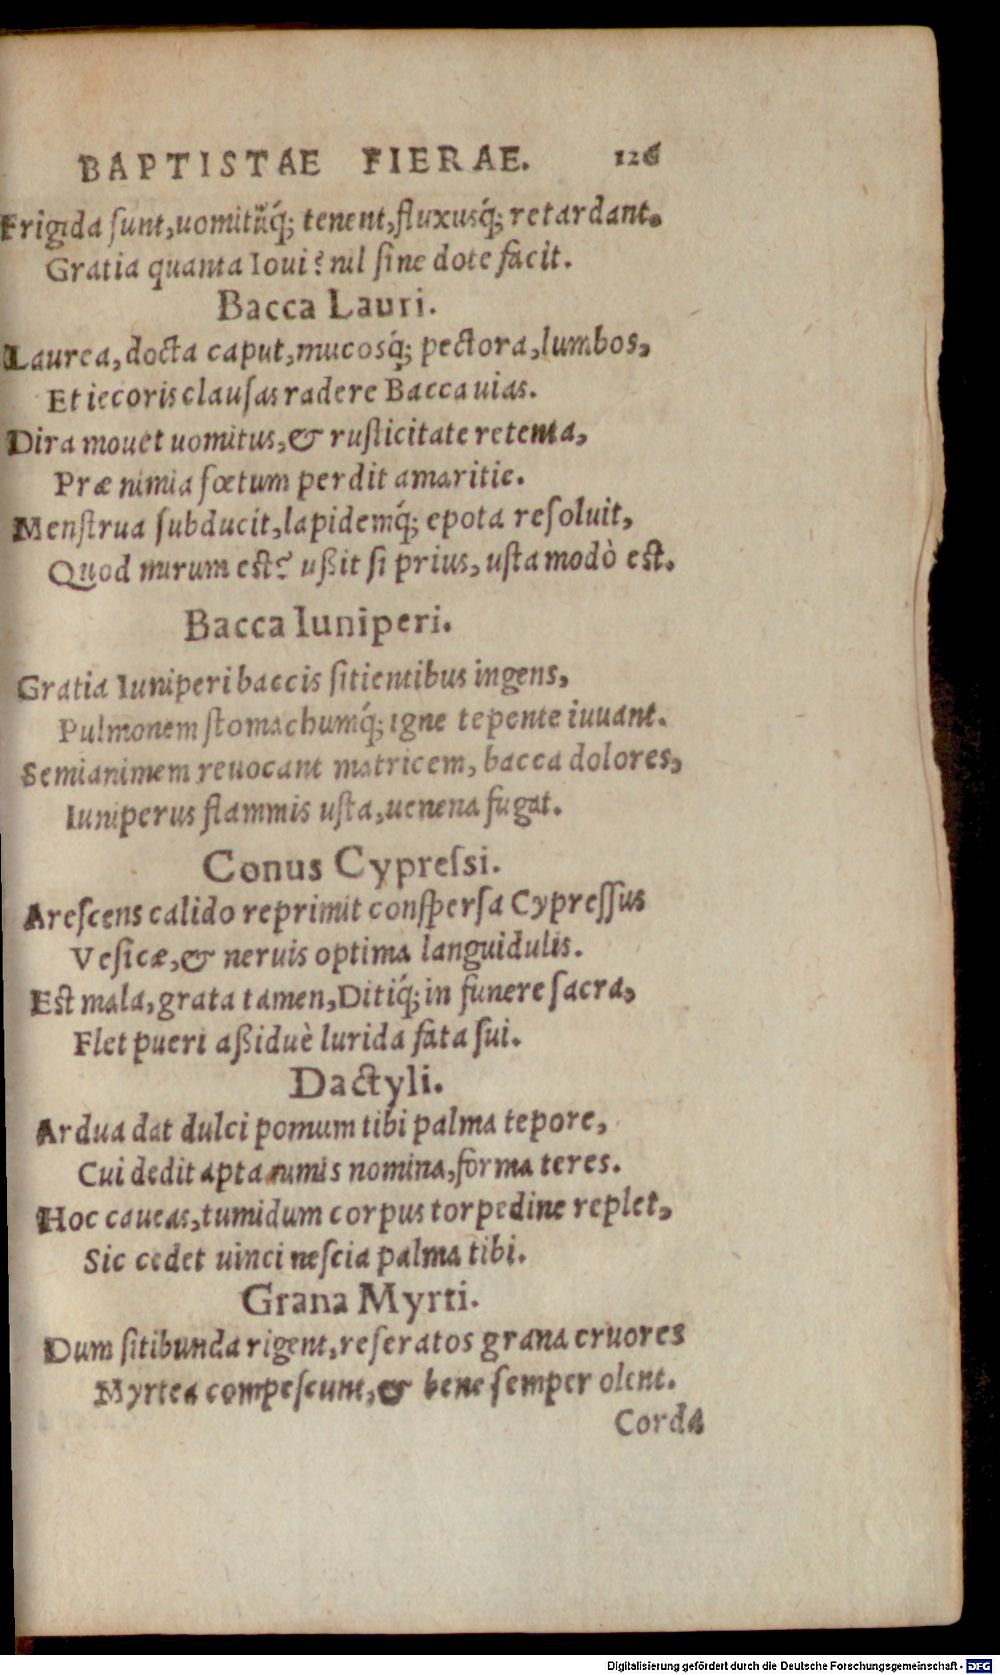 BAPTISTAE FIERAE. 126
Frigida ſunt,uomitũq́; tenent,fluxusq́; retardant.
Gratia quanta Ioui? nil ſine dote facit.
Bacca Lauri.
Laurea,docta caput,mucosq́; pectora,lumbos,
Et iecoris clauſas radere Bacca uias.
Dira mouet uomitus,& ruſticitate retenta,
Præ nimia fœtum perdit amaritie.
Menſtrua ſubducit,lapidemq́; epota reſoluit,
Quod mirum eſt? ußit ſi prius, uſta modò eſt.
Bacca Iuniperi.
Gratia Iuniperi baccis ſitientibus ingens,
Pulmonem ſtomachumq́; igne tepente iuuant.
Semianimem reuocant matricem, bacca dolores,
Iuniperus flammis uſta,uenena fugat.
Conus Cypreſsi.
Areſcens calido reprimit conſperſa Cypreſſus
Veſicæ,& neruis optima languidulis.
Eſt mala,grata tamen,Ditiq́; in funere ſacra,
Flet pueri aßiduè lurida fata ſui.
Dactyli.
Ardua dat dulci pomum tibi palma tepore,
Cui dedit apta nimis nomina,forma teres.
Hoc caueas,tumidum corpus torpedine replet,
Sic cedet uinci neſcia palma tibi.
Grana Myrti.
Dum ſitibunda rigent,reſeratos grana cruores
Myrtea compeſcunt,& bene ſemper olent.
Corda
Digitalisierung gefördert durch die Deutsche Forschungsgemeinschaft - DFG